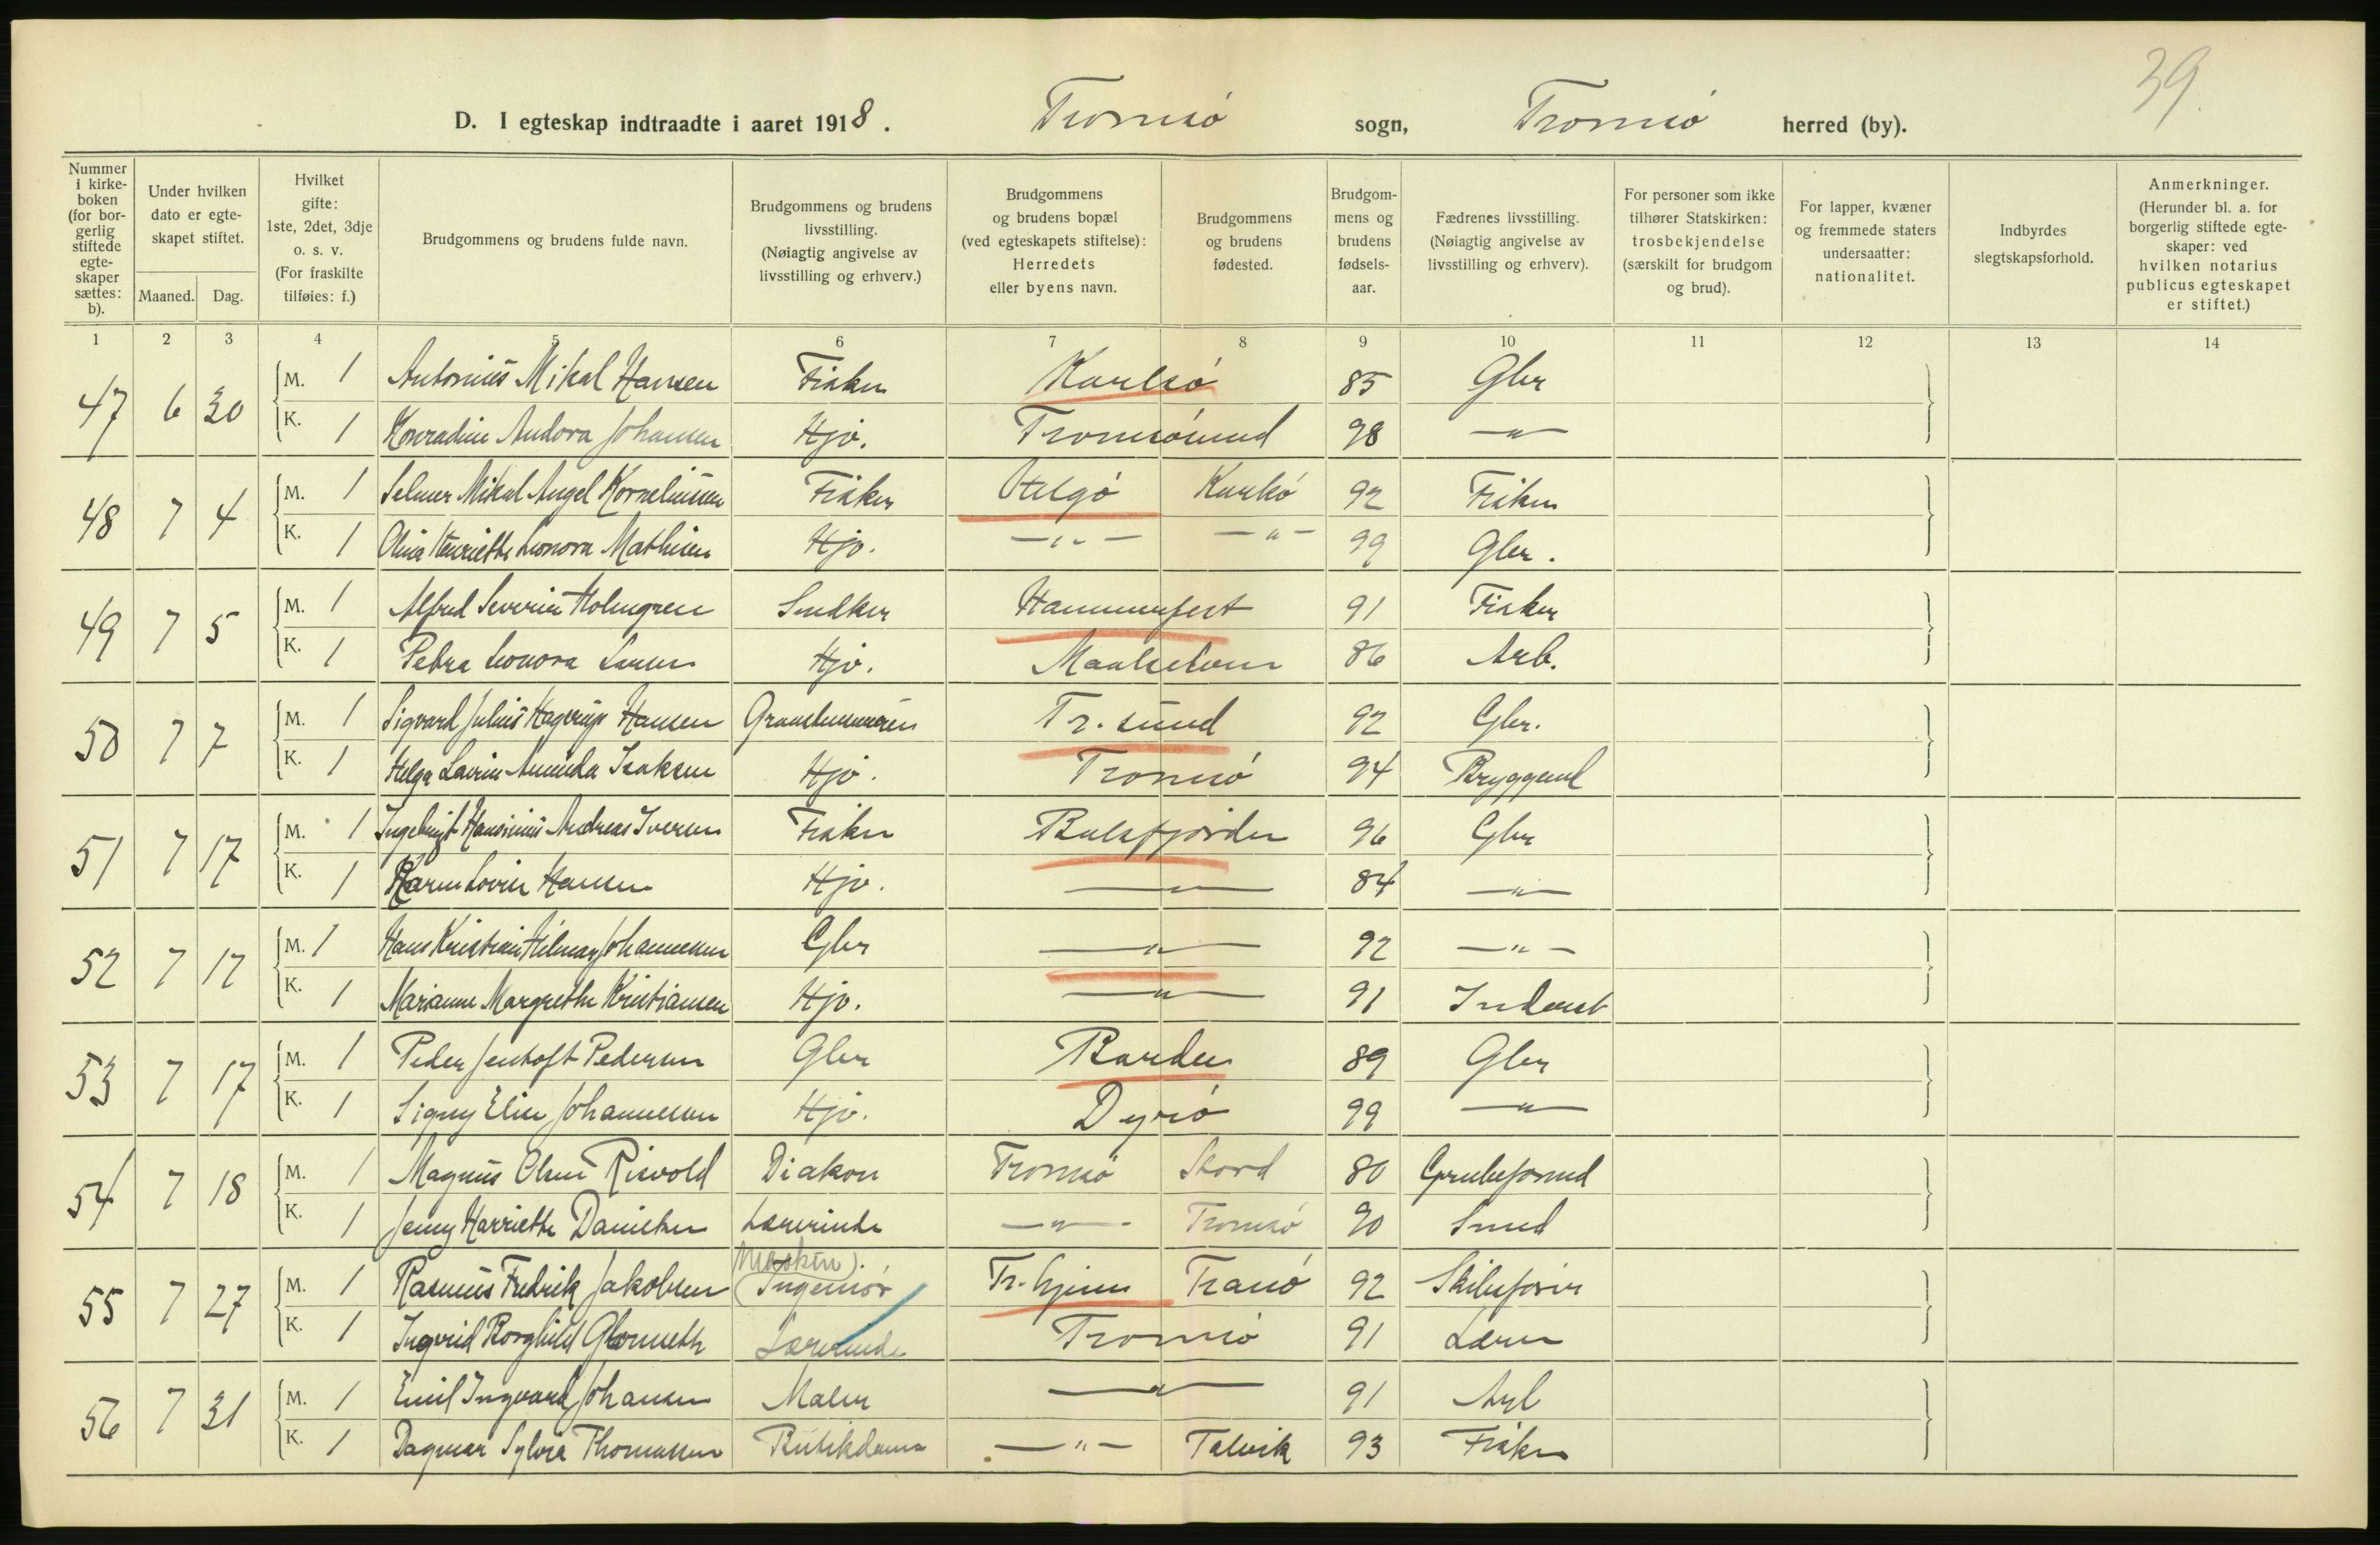 39.
D. I egteskap indtraadte i aaret 1918. Tromsø sogn, Tromsø herred (by).
Nummer i kirke-boken (for bor-gerlig stiftede egte-skaper sættes: b).
Under hvilken dato er egte-skapet stiftet.
Maaned. Dag.
Hvilket gifte: 1ste, 2det, 3dje o. s. v. (For fraskilte tilføies: f.)
Brudgommens og brudens fulde navn.
Brudgommens og brudens livsstilling. (Nøiagtig angivelse av livsstilling og erhverv.)
Brudgommens og brudens bopæl (ved egteskapets stiftelse): Herredets eller byens navn.
Brudgommens og brudens fødested.
Brudgom-mens og brudens fødsels-aar.
Fædrenes livsstilling. (Nøiagtig angivelse av livsstilling og erhverv).
For personer som ikke tilhører Statskirken: trosbekjendelse (særskilt for brudgom og brud).
For lapper, kvæner og fremmede staters undersaatter: nationalitet.
Indbyrdes slegtskapsforhold.
Anmerkninger. (Herunder bl. a. for borgerlig stiftede egte-skaper: ved hvilken notarius publicus egteskapet er stiftet.)
1 2 3 4 5 6 7 8 9 10 11 12 13 14
47 6 30 M. 1 Antonius Mikal Hansen Fisker Karlsø 85 Gbr
K. 1 Konradine Andora Johansen Hjv. Tromsøsund 98 —„—
48 7 4 M. 1 Selmer Mikal Angel Korneliussen Fisker Helgø Karlsø 92 Fisker
K. 1 Olina Henriette Leonora Mathisen Hjv. —„— —„— 99 Gbr.
49 7 5 M. 1 Alfred Severin Holmgren Snedker Hammerfest 91 Fisker
K. 1 Petra Leonora Larsen Hjv. Maalselven 86 Arb.
50 7 7 M. 1 Sigvard Julius Hagerup Hansen Tr. sund 92 Gbr.
K. 1 Helga Lavine Aminda Isaksen Hjv. Tromsø 94 Bryggemd
51 7 17 M. 1 Ingebrigt Hansinius Andreas Iversen Fisker Balsfjorden 96 Gbr
K. 1 Karen Lovise Hansen Hjv. —„— 84 —„—
52 7 17 M. 1 Hans Kristian Hilmar Johannesen Gbr —„— 92 —„—
K. 1 Marianne Margrethe Kristiansen Hjv. —„— 91 Inderst
53 7 17 M. 1 Peder Jentoft Pedersen Gbr Bardu 89 Gbr
K. 1 Signy Elise Johannessen Hjv. Dyrø 99 —„—
54 7 18 M. 1 Magnus Olsen Risvold Diakon Tromsø Stord 80 Grubeformd
K. 1 Jenny Harriette Danielsen Lærerinde —„— Tromsø 90 Smed
55 7 27 M. 1 Rasmus Fredrik Jakobsen (Maskin) Ingeniør Tr. hjem Tranø 92 Skibsfører
K. 1 Ingrid Borghild Glørmeth Lærerinde Tromsø 91 Lærer
56 7 31 M. 1 Emil Ingvard Johansen Maler —„— 91 Arb
K. 1 Dagmar Sylvia Thomassen Butikdame —„— Talvik 93 Fisker